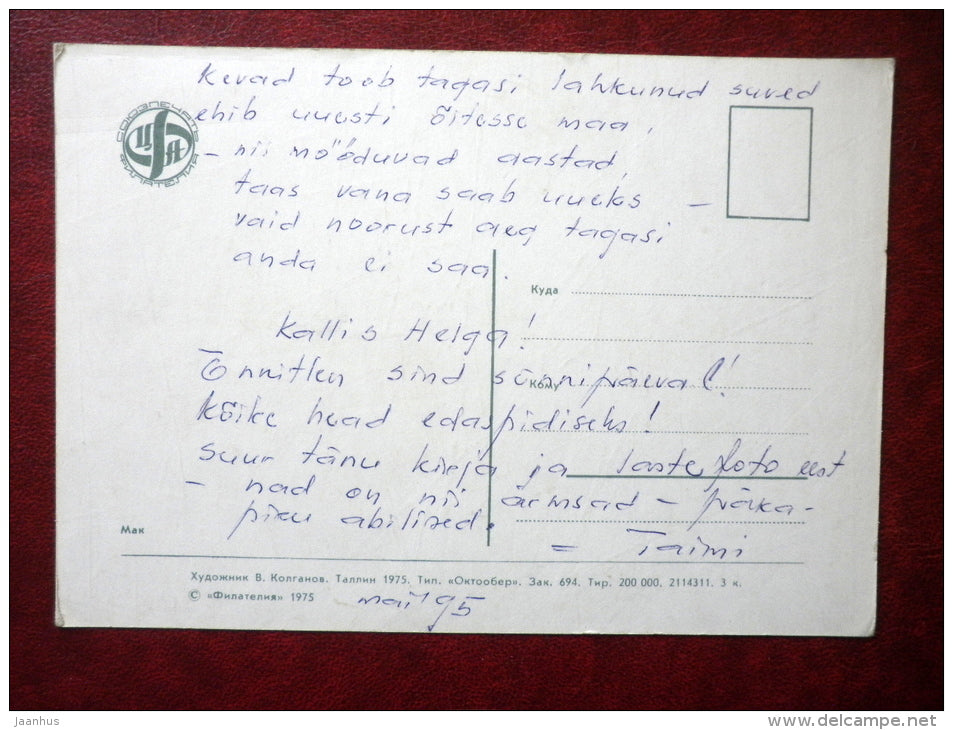 Kevad toob tagasi lahkunud suved
ehib uuesti õitesse maa,
- nii mööduvad aastad,
taas vana saab uueks -
vaid noorust aeg tagasi
anda ei saa.
СОЮЗПЕЧАТЬ
ЦФА
ФИЛАТЕЛИЯ
Куда
Kallis Helga!
Õnnitlen sind sünnipäeval!
Кому
Kõike head edaspidiseks!
Suur tänu kirja ja laste foto eest
- nad on nii armsad - päka-
piku abilised.
= Taimi
Мак
Художник В. Колганов. Таллин 1975. Тип. «Октообер». Зак. 694. Тир. 200 000. 2114311. 3 к.
© «Филателия» 1975
mai 95
Jaanhus
www.delcampe.net